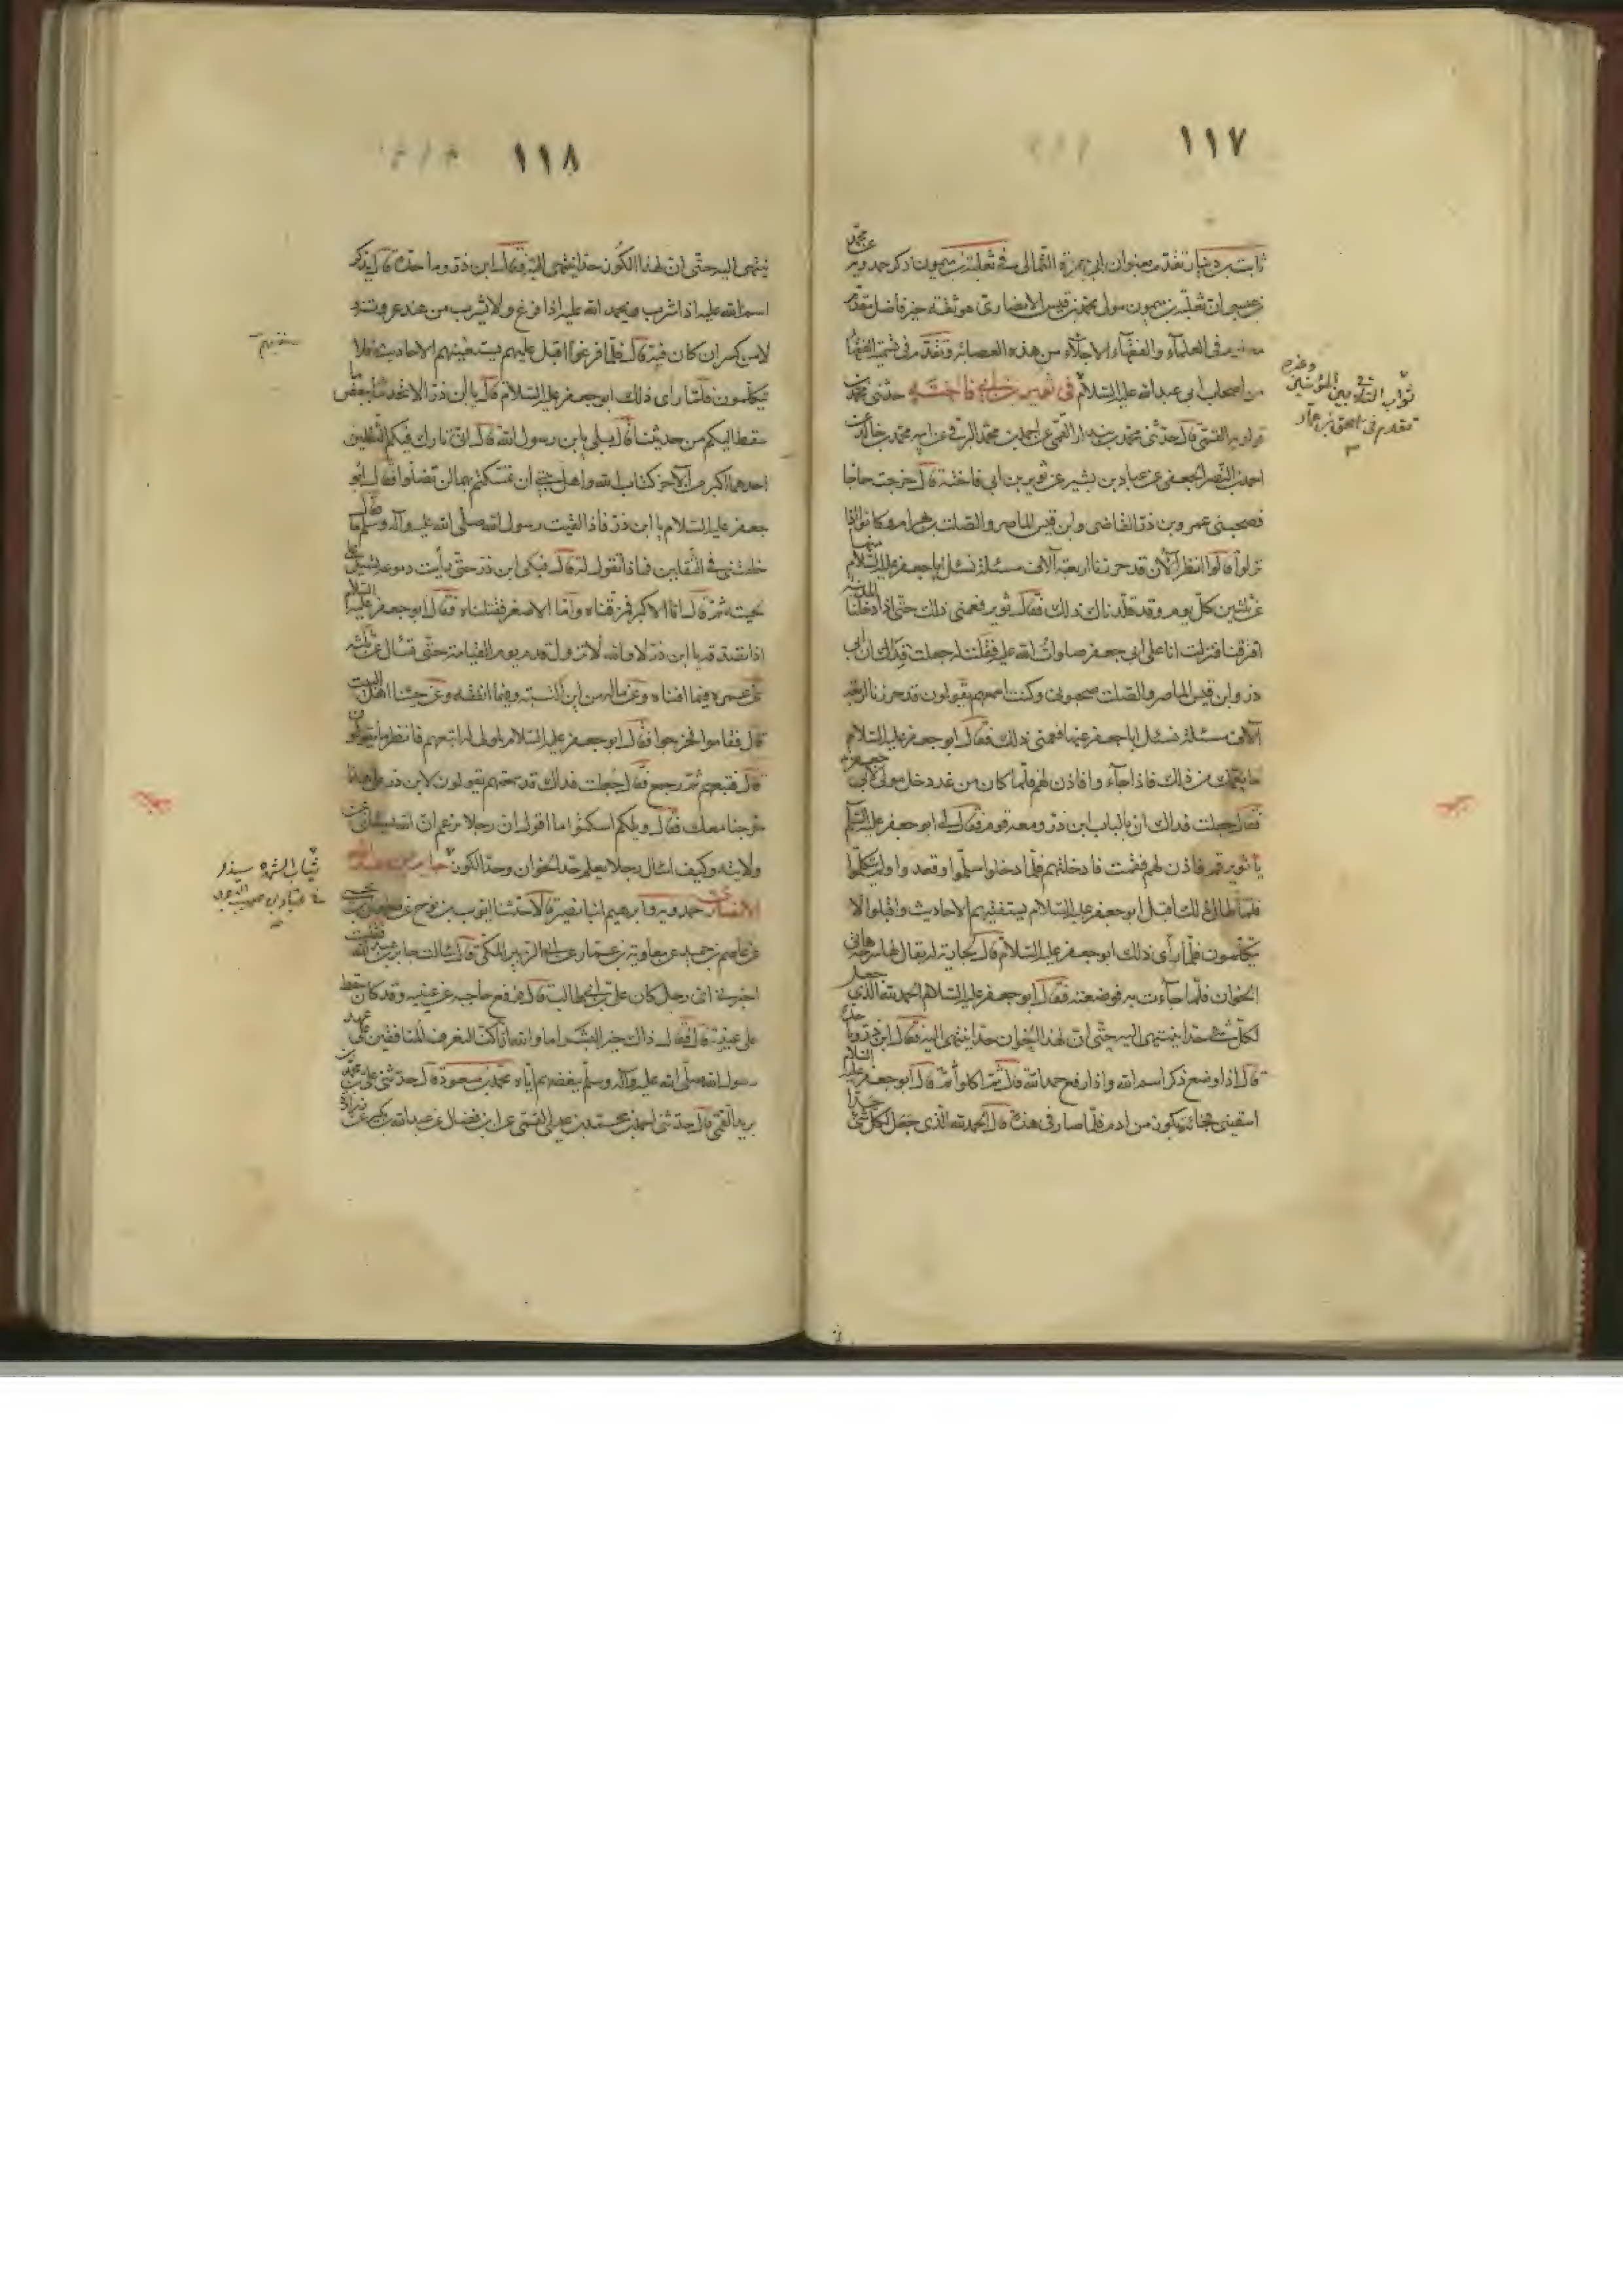 ١١٧
ثابت بن دينار تقدم بعنوان ابي حمزة الثمالي في ثعلبة بن ميمون ذكر حمدويه عن محمد
بن عيسى ان ثعلبة بن ميمون مولى محمد بن قيس الانصاري هو ثقة خير فاضل مقدم
معلوم في العلماء والفقهاء الاجلاء من هذه العصابة وتقدم في تسمية الفقهاء
من اصحاب ابي عبدالله عليه السلام في ثوير بن ابي فاختة حدثني محمد بن
قولويه القمي قال حدثني محمد بن بندار القمي عن احمد بن محمد البرقي عن ابيه محمد بن خالد عن
احمد بن النضر الجعفي عن عباد بن بشير عن ثوير بن ابي فاختة قال خرجت حاجا
فصحبني عمرو بن ذر القاضي وابن قيس الماصر والصلت بن بهرام وكانوا اذا
نزلوا قالوا انظر الآن قد حررنا اربعة آلاف مسئلة نسئل ابا جعفر عليه السلام منها
عن ثلثين كل يوم وقد قلدناك ذلك فقال ثوير فغمني ذلك حتى اذا دخلنا المدينة
افترقنا فنزلت انا على ابي جعفر صلوات الله عليه فقلت له جعلت فداك ان ابن
ذر وابن قيس الماصر والصلت صحبوني وكنت اسمعهم يقولون قد حررنا اربعة
آلاف مسئلة نسئل ابا جعفر عنها فغمني ذلك فقال ابو جعفر عليه السلام
ما يغمك من ذلك فاذا جاءوا فاذن لهم فلما كان من غد دخل مولى لابي جعفر
فقال جعلت فداك ان بالباب ابن ذر ومعه قوم فقال لي ابو جعفر عليه السلام
يا ثوير قم فاذن لهم فقمت فادخلتهم فلما دخلوا سلموا وقعدوا ولم يتكلموا
فلما طال ذلك اقبل ابو جعفر عليه السلام يستفتيهم الاحاديث واقبلوا لا
يتكلمون فلما رأى ذلك ابو جعفر عليه السلام قال لجارية له يقال لها سرحة هاتي
الخوان فلما جاءت به فوضعته فقال ابو جعفر عليه السلام الحمد لله الذي جعل
لكل شيء حدا ينتهي اليه حتى ان لهذا الخوان حدا ينتهي اليه فقال ابن ذر وما حده
قال اذا وضع ذكر اسم الله واذا رفع حمد الله قال ثم اكلوا ثم قال ابو جعفر عليه السلام
اسقيني فجائته بكوز من ادم فلما صار في يده قال الحمد لله الذي جعل لكل شيء حدا
ثواب التأديب بين المؤمنين وغيره
تقدم في اسحق بن عمار
١١٨
ينتهي اليه حتى ان لهذا الكوز حدا ينتهي اليه فقال ابن ذر وما حده قال يذكر
اسم الله عليه اذا شرب ويحمد الله عليه اذا فرغ ولا يشرب من عند عروته و
لا من كسر ان كان فيه قال فلما فرغوا اقبل عليهم يستفتيهم الاحاديث فلا
يتكلمون فلما رأى ذلك ابو جعفر عليه السلام قال يا ابن ذر الا تحدثنا ببعض ما
سقط اليكم من حديثنا قال بلى يا ابن رسول الله قال اني تارك فيكم الثقلين
احدهما اكبر من الآخر كتاب الله واهل بيتي ان تمسكتم بهما لن تضلوا فقال ابو
جعفر عليه السلام يا ابن ذر فاذا لقيت رسول الله صلى الله عليه وآله وسلم فقال ما
خلفتني في الثقلين فماذا تقول له قال فبكى ابن ذر حتى رأيت دموعه تسيل على
لحيته ثم قال اما الاكبر فمزقناه واما الاصغر فقتلناه فقال ابو جعفر عليه السلام
اذا تصدقه يا ابن ذر لا والله لا تزول قدم يوم القيامة حتى تسأل عن ثلثة
عن عمره فيما افناه وعن ماله من اين اكتسبه وفيما انفقه وعن حبنا اهل البيت
قال فقاموا وخرجوا فقال ابو جعفر عليه السلام لمولى له اتبعهم فانظر ما يقولون
قال فتبعهم ثم رجع فقال جعلت فداك قد سمعتهم يقولون لابن ذر على هذا
خرجنا معك فقال ويلكم اسكتوا ما اقول ان رجلا يزعم ان الله يسئلني عن
ولايته وكيف اسأل رجلا يعلم حد الخوان وحد الكوز جابر بن عبدالله
الانصاري حمدويه وابرهيم ابنا نصير قالا حدثنا ايوب بن نوح عن صفوان بن يحيى
عن عاصم بن حميد عن معاوية بن عمار عن ابي الزبير المكي قال سألت جابر بن عبد الله فقلت
اخبرني اي رجل كان علي بن ابيطالب قال فرفع حاجبه عن عينيه وقد كان سقط
على عينيه قال فقال ذاك خير البشر اما والله ان كنا لنعرف المنافقين على عهد
رسول الله صلى الله عليه وآله وسلم ببغضهم اياه محمد بن مسعود قال حدثني علي بن محمد بن
يزيد القمي قال حدثني احمد بن محمد بن عيسى القمي عن ابن فضال عن عبدالله بن بكير عن زرارة
ثياب الشهرة سيذكر
في عباد بن صهيب